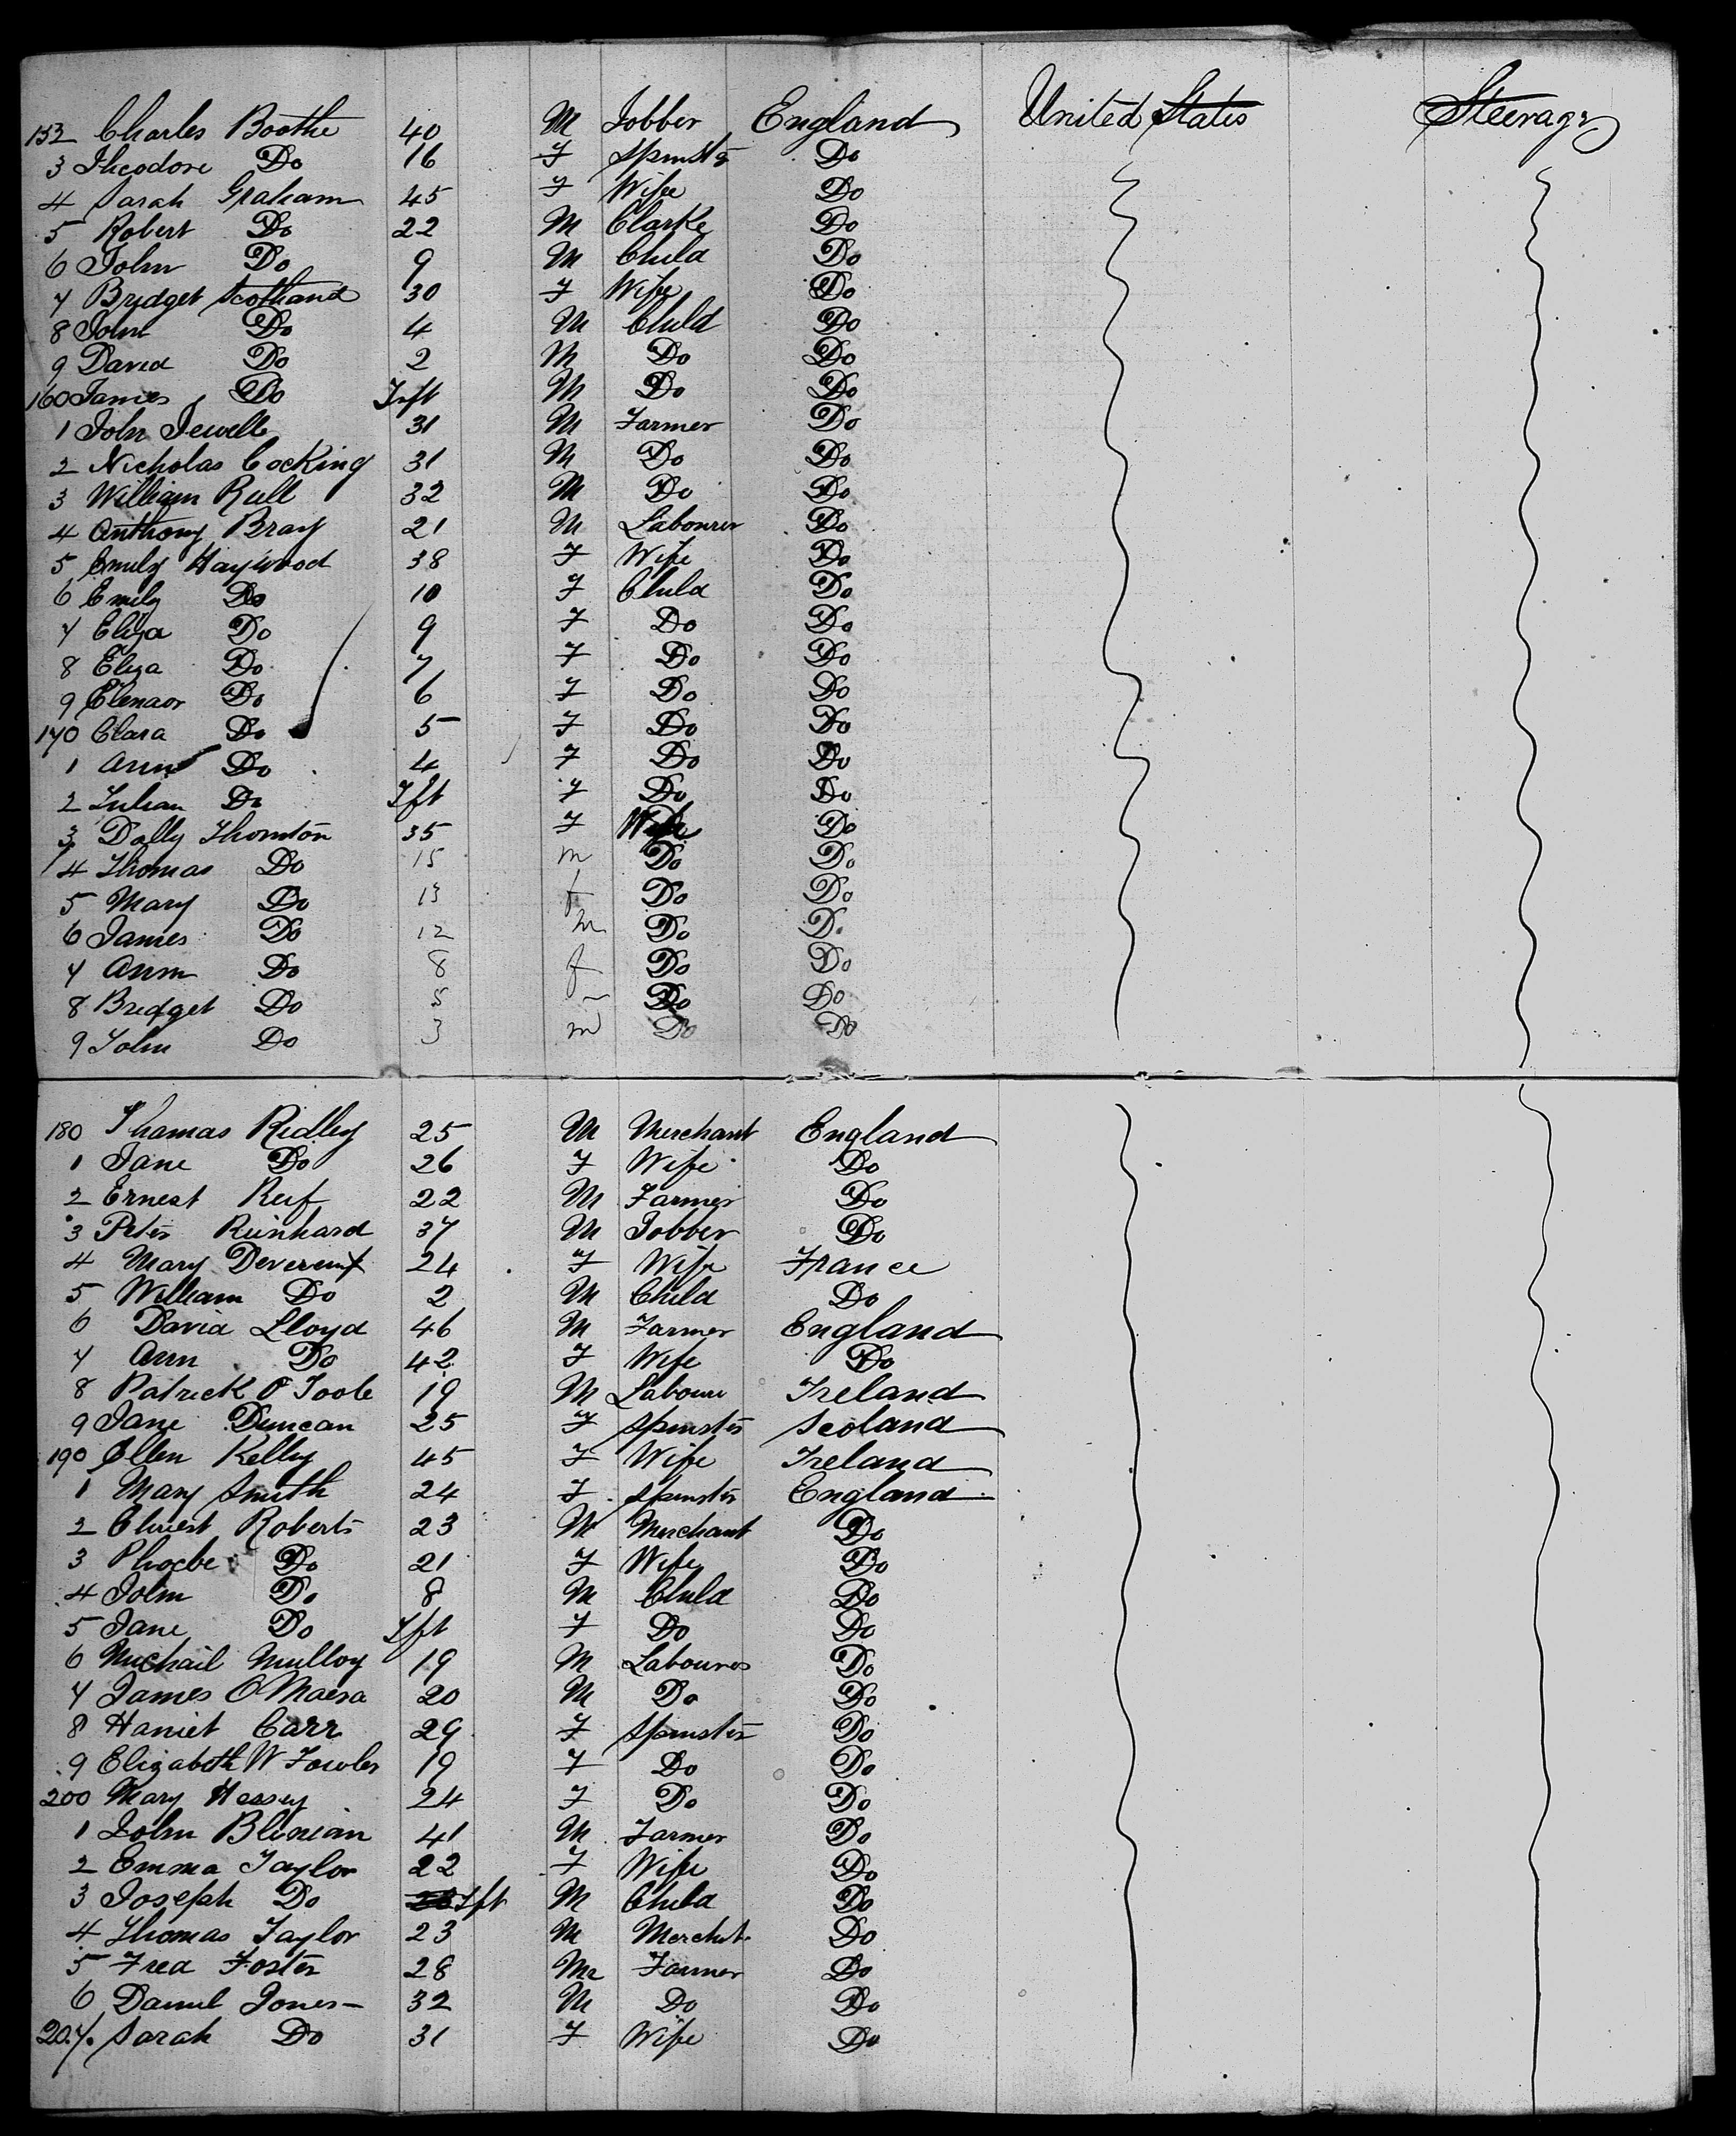 152 Charles Boothe 40 M Jobber England United States Steerage
3 Theodore Do 16 F Spinstr Do
4 Sarah Graham 45 F Wife Do
5 Robert Do 22 M Clarke Do
6 John Do 9 M Child Do
7 Brydget Scothand 30 F Wife Do
8 John Do 4 M Child Do
9 David Do 2 M Do Do
160 James Do Inft M Do Do
1 John Jewell 31 M Farmer Do
2 Nicholas Cocking 31 M Do Do
3 William Rull 32 M Do Do
4 Anthony Bray 21 M Labourer Do
5 Emily Haywood 38 F Wife Do
6 Emily Do 10 F Child Do
7 Eliza Do 9 F Do Do
8 Eliza Do 7 F Do Do
9 Elenaor Do 6 F Do Do
170 Clara Do 5 F Do Do
1 Ann Do 4 F Do Do
2 Julian Do Ift F Do Do
3 Dolly Thornton 35 F Wife Do
4 Thomas Do 15 m Do Do
5 Mary Do 13 f Do Do
6 James Do 12 m Do Do
7 Ann Do 8 f Do Do
8 Bridget Do 5 Do Do
9 John Do 3 m Do Do
180 Thomas Ridley 25 M Merchant England
1 Jane Do 26 F Wife Do
2 Ernest Reif 22 M Farmer Do
3 Peter Reinhard 37 M Jobber Do
4 Mary Devereux 24 F Wife France
5 William Do 2 M Child Do
6 David Lloyd 46 M Farmer England
7 Ann Do 42 F Wife Do
8 Patrick O Toole 19 M Laboure Ireland
9 Jane Duncan 25 F Spinster Scoland
190 Ellen Kelly 45 F Wife Ireland
1 Mary Smith 24 F Spinster England
2 Roberts 23 M Merchant Do
3 Phoebe Do 21 F Wife Do
4 John Do 8 M Child Do
5 Jane Do Ift F Do Do
6 Michail Mulloy 19 M Labourer Do
7 James O Maera 20 M Do Do
8 Harriet Carr 29 F Spinster Do
9 Elizabeth W Fowler 19 F Do Do
200 Mary Hessey 24 F Do Do
1 John 41 M Farmer Do
2 Emma Taylor 22 F Wife Do
3 Joseph Do Ift M Child Do
4 Thomas Taylor 23 M Mercht. Do
5 Fred Foster 28 M Farmer Do
6 Daniel Jones 32 M Do Do
207. Sarah Do 31 F Wife Do